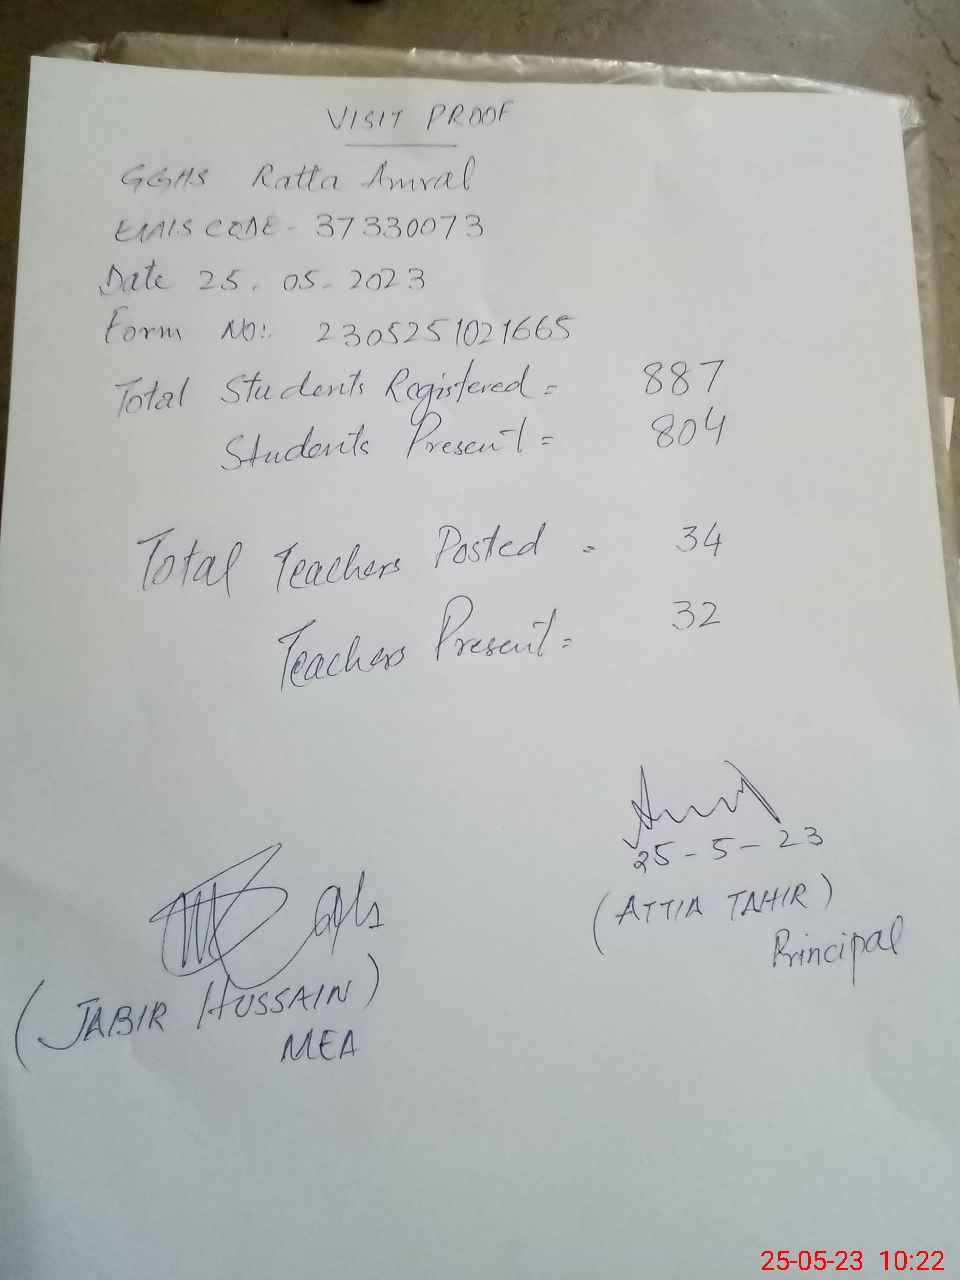 VISIT PROOF
GGHS Ratta Amral
EMIS CODE - 37330073
Date 25. 05. 2023
Form No:. 2305251021665
Total Students Registered = 887
Students Present = 804
Total Teachers Posted = 34
Teachers Present = 32
25-5-23
(ATTIA TAHIR)
Principal
(JABIR HUSSAIN)
MEA
25-05-23 10:22